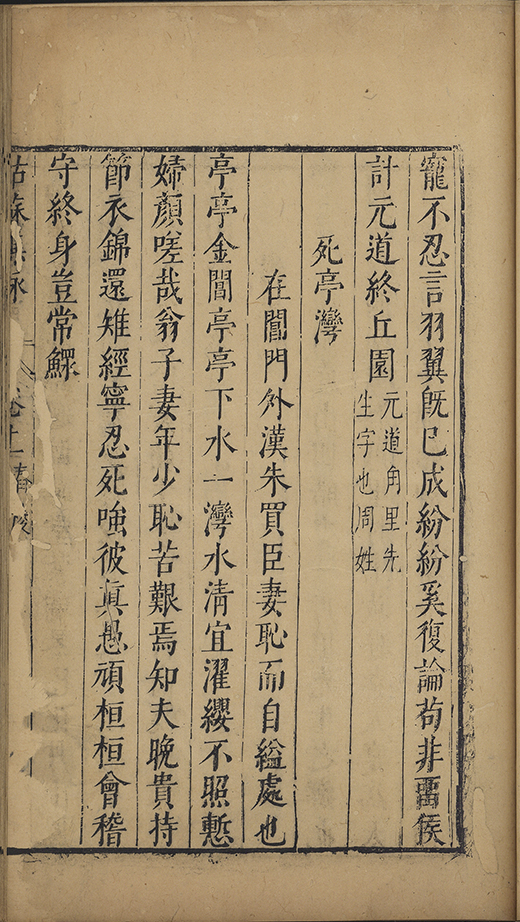 寵不忍言羽翼旣已成紛紛奚復論苟非畱侯
計元道終丘園元道角里先
生字也周姓
死亭灣
在閶門外漢朱買臣妻恥而自縊處也
亭亭金閶亭亭下水一灣水清宜濯纓不照慙
婦顏嗟哉翁子妻年少恥苦艱焉知夫晚貴持
節衣錦還雉經寧忍死嗤彼眞愚頑桓桓會稽
守終身豈常鰥
姑蘇 詠 卷十一